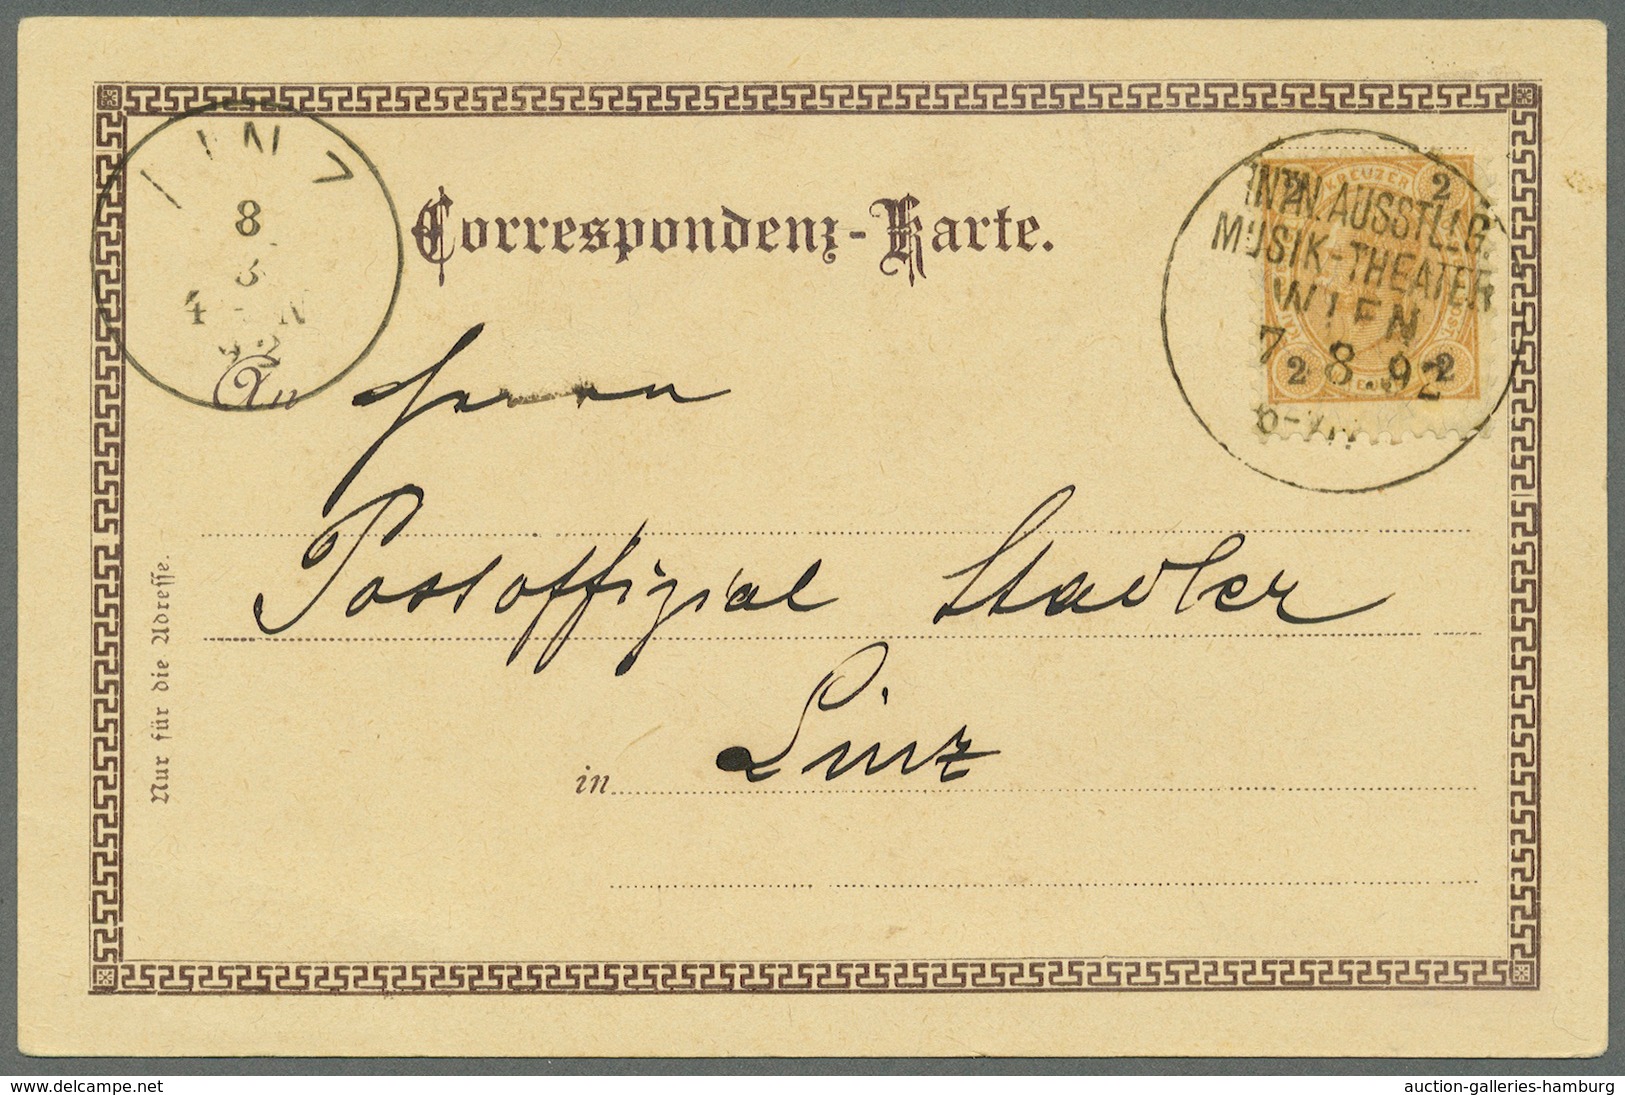 LINZ
8
8
4
92
INTN. AUSSTLLG.
MUSIK-THEATER
WIEN
7 8.92
KREUZER
2 2
2 2
Correspondenz-Karte.
An Herrn
Postoffizial Stadler
in Linz
Nur für die Adresse.
www.delcampe.net
auction-galleries-hamburg